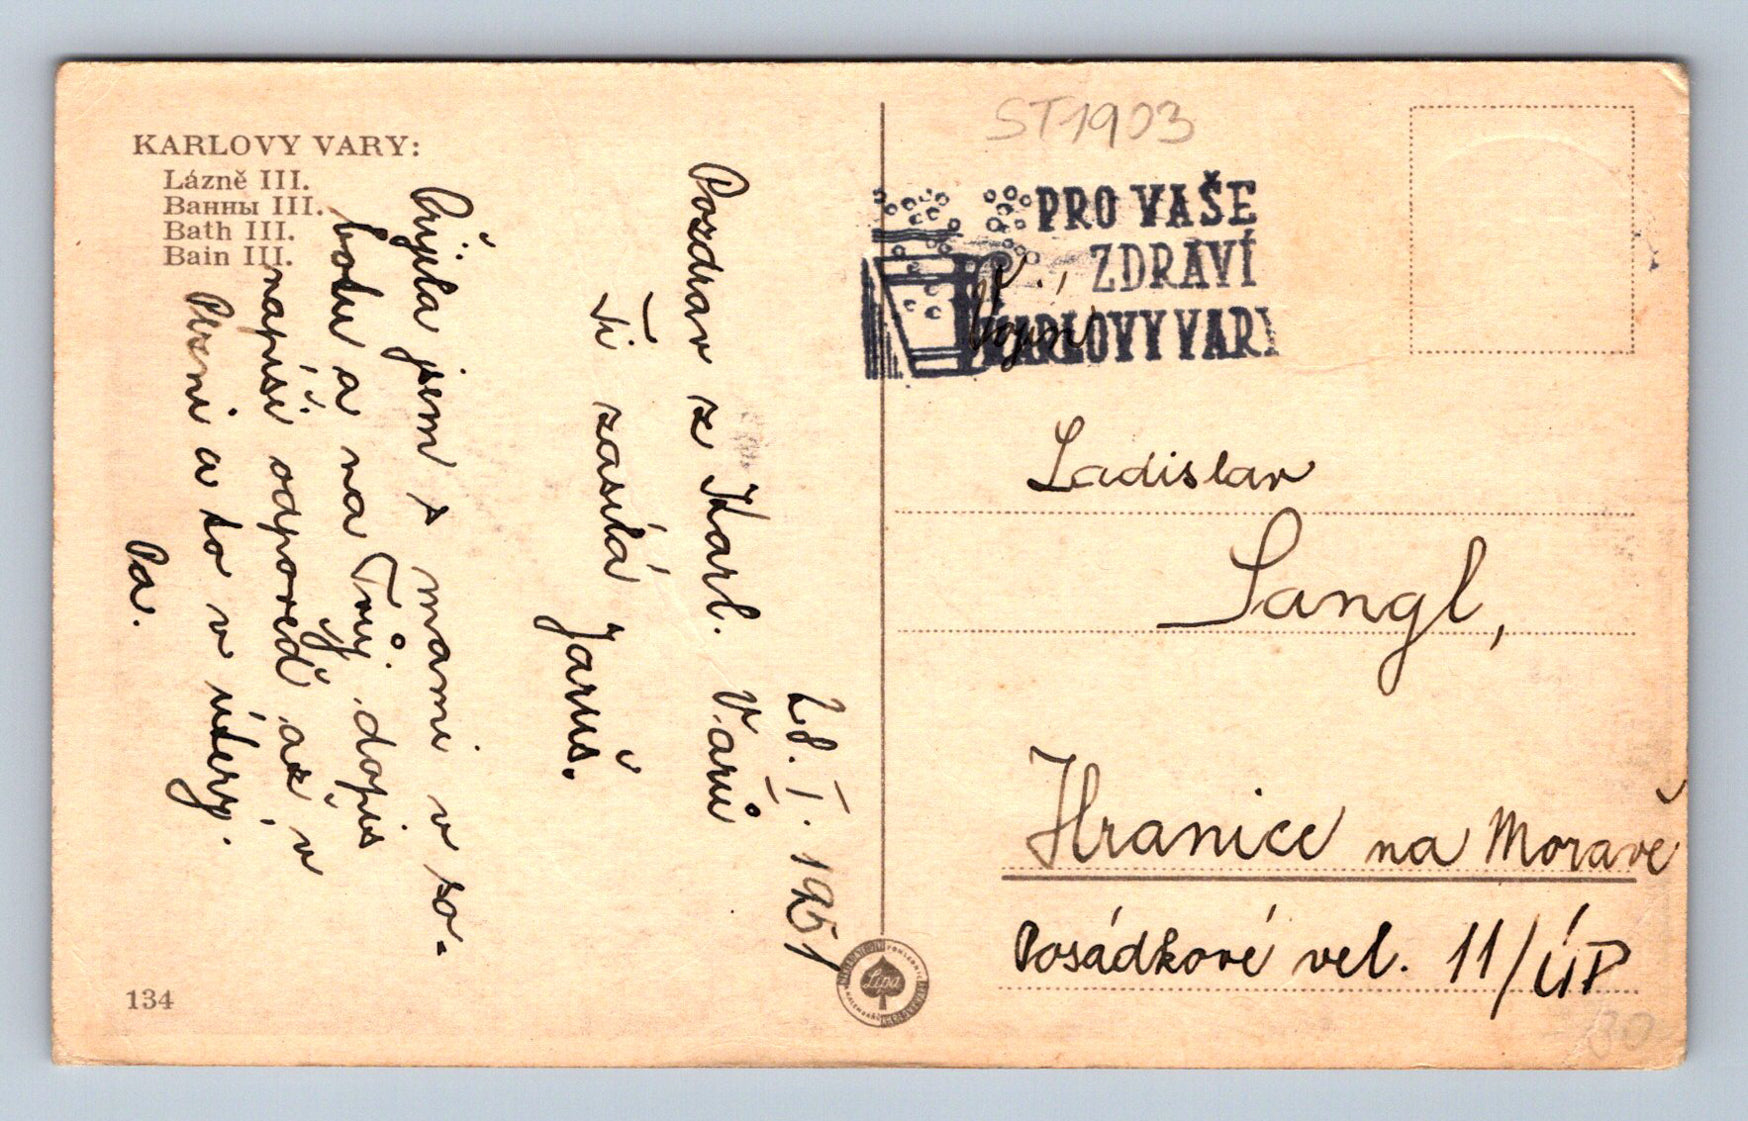 KARLOVY VARY:
Lázně III.
Ванны III.
Bath III.
Bain III.
28. I. 1951
Pozdrav z Karl. Varů
Ti zasílá
Jaruš.
Přijela jsem s mami v so-
botu a na Tvůj dopis
napíši odpověď až v
Plzni a to v úterý.
Pa.
134
Lípa
ST1903
PRO VAŠE
ZDRAVÍ
KARLOVY VARY
Vojín
Ladislav
Langl,
Hranice na Moravě
Posádkové vel. 11/ÚP
30